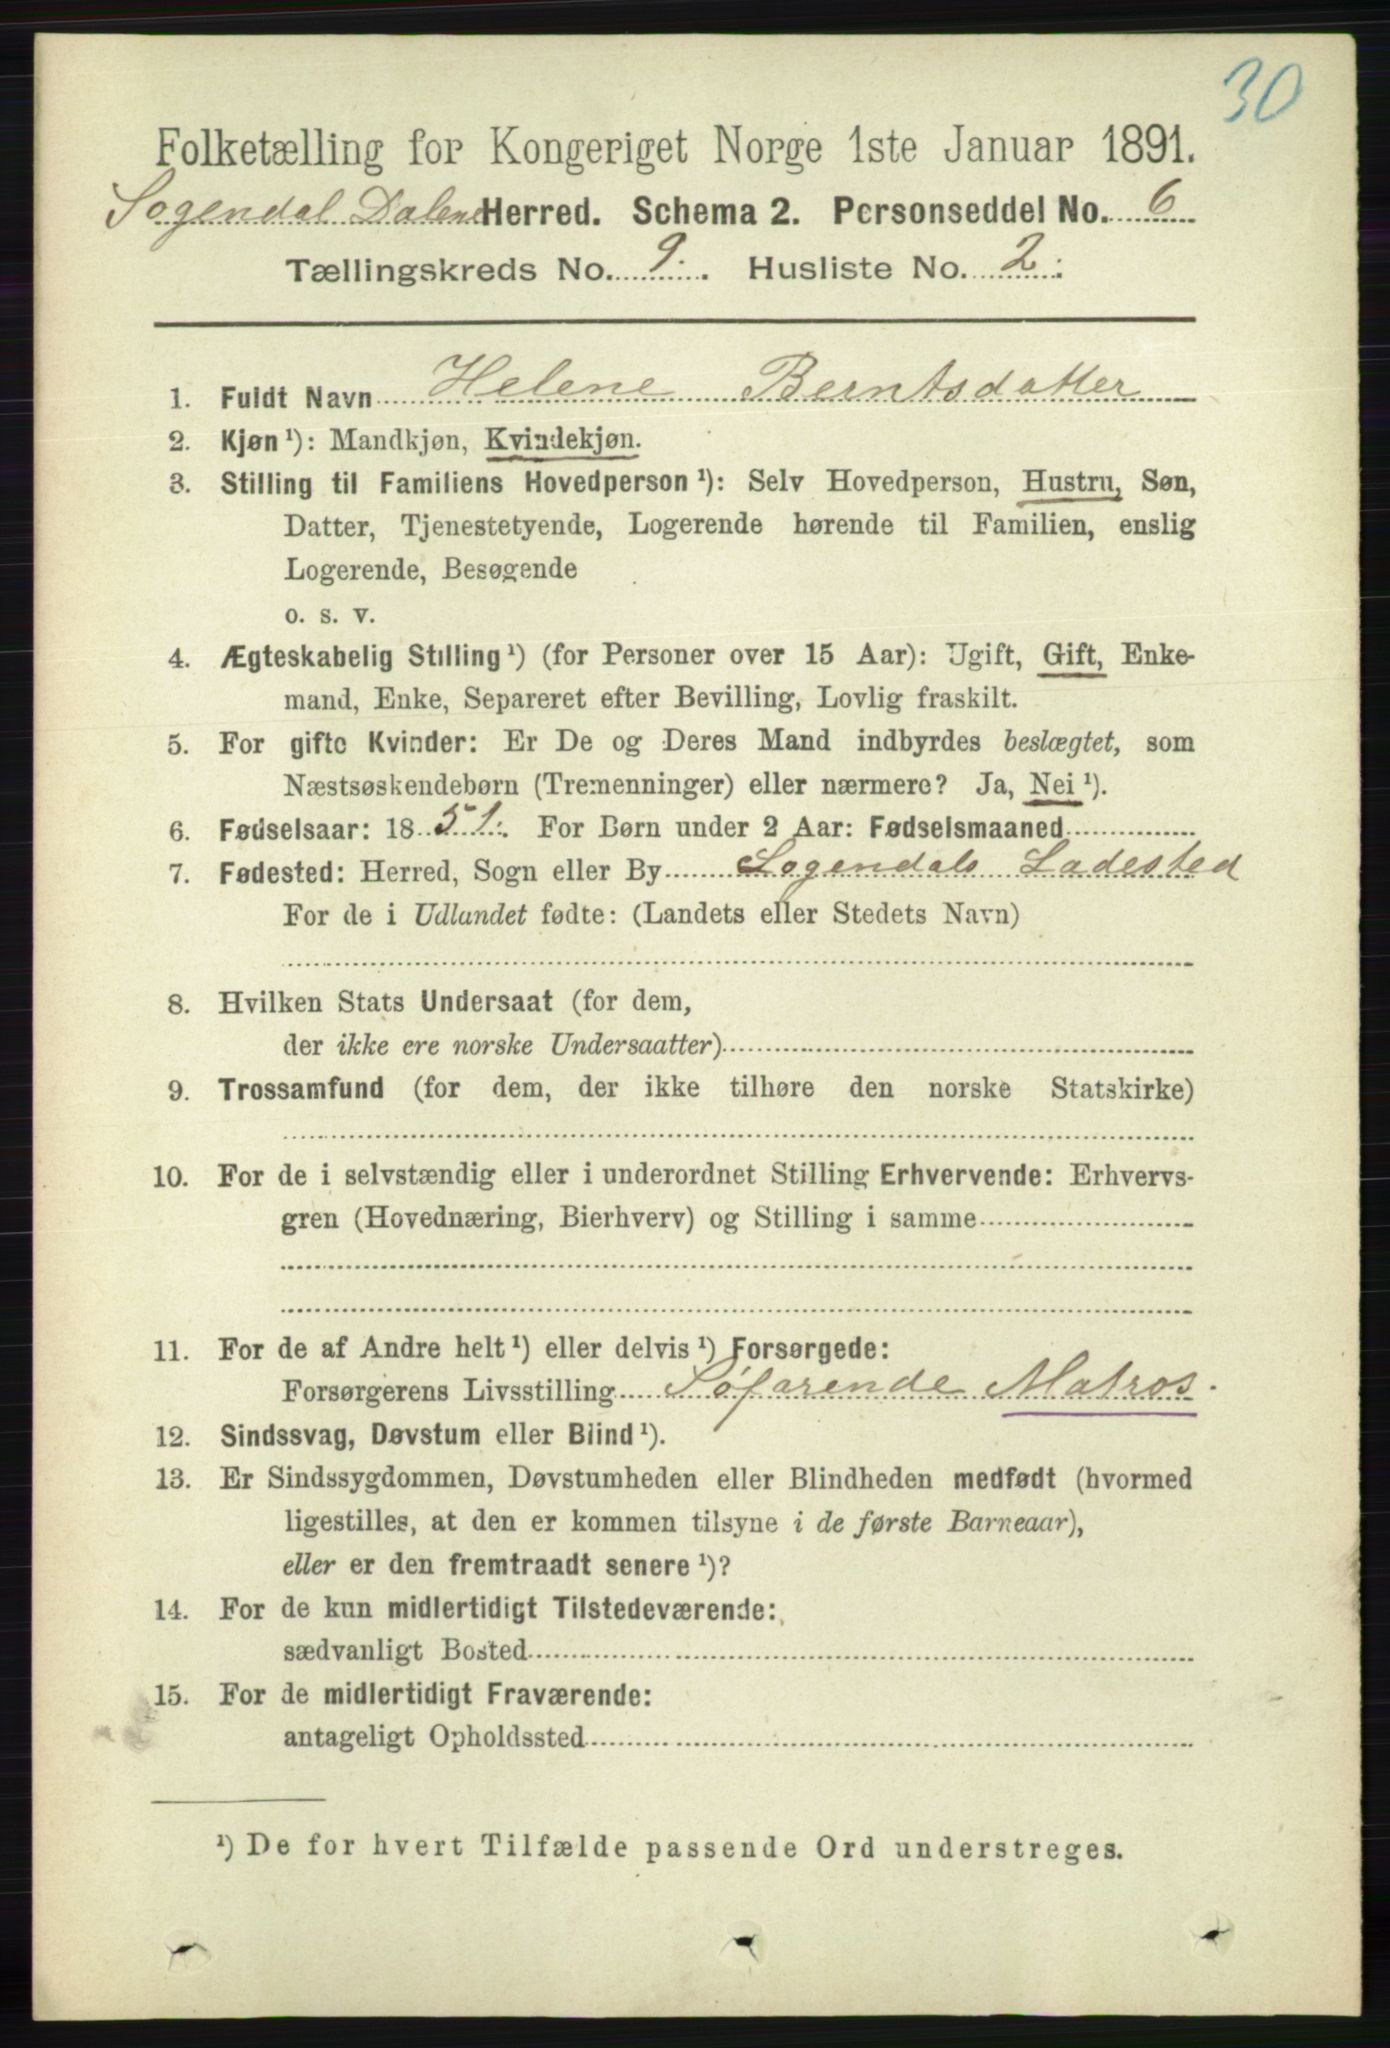 30
Folketælling for Kongeriget Norge 1ste Januar 1891.
Sogendal Dalene Herred. Schema 2. Personseddel No. 6
Tællingskreds No. 9. Husliste No. 2.
1. Fuldt Navn Helene Berntsdatter
2. Kjøn ¹): Mandkjøn, Kvindekjøn.
3. Stilling til Familiens Hovedperson ¹): Selv Hovedperson, Hustru, Søn,
Datter, Tjenestetyende, Logerende hørende til Familien, enslig
Logerende, Besøgende
o. s. v.
4. Ægteskabelig Stilling ¹) (for Personer over 15 Aar): Ugift, Gift, Enke-
mand, Enke, Separeret efter Bevilling, Lovlig fraskilt.
5. For gifte Kvinder: Er De og Deres Mand indbyrdes beslægtet, som
Næstsøskendebørn (Tremenninger) eller nærmere? Ja, Nei ¹).
6. Fødselsaar: 1851. For Børn under 2 Aar: Fødselsmaaned
7. Fødested: Herred, Sogn eller By Sogendals Ladested
For de i Udlandet fødte: (Landets eller Stedets Navn)
8. Hvilken Stats Undersaat (for dem,
der ikke ere norske Undersaatter)
9. Trossamfund (for dem, der ikke tilhøre den norske Statskirke)
10. For de i selvstændig eller i underordnet Stilling Erhvervende: Erhvervs-
gren (Hovednæring, Bierhverv) og Stilling i samme
11. For de af Andre helt ¹) eller delvis ¹) Forsørgede:
Forsørgerens Livsstilling Søfarende Matros.
12. Sindssvag, Døvstum eller Blind ¹).
13. Er Sindssygdommen, Døvstumheden eller Blindheden medfødt (hvormed
ligestilles, at den er kommen tilsyne i de første Barneaar),
eller er den fremtraadt senere ¹)?
14. For de kun midlertidigt Tilstedeværende:
sædvanligt Bosted
15. For de midlertidigt Fraværende:
antageligt Opholdssted
¹) De for hvert Tilfælde passende Ord understreges.